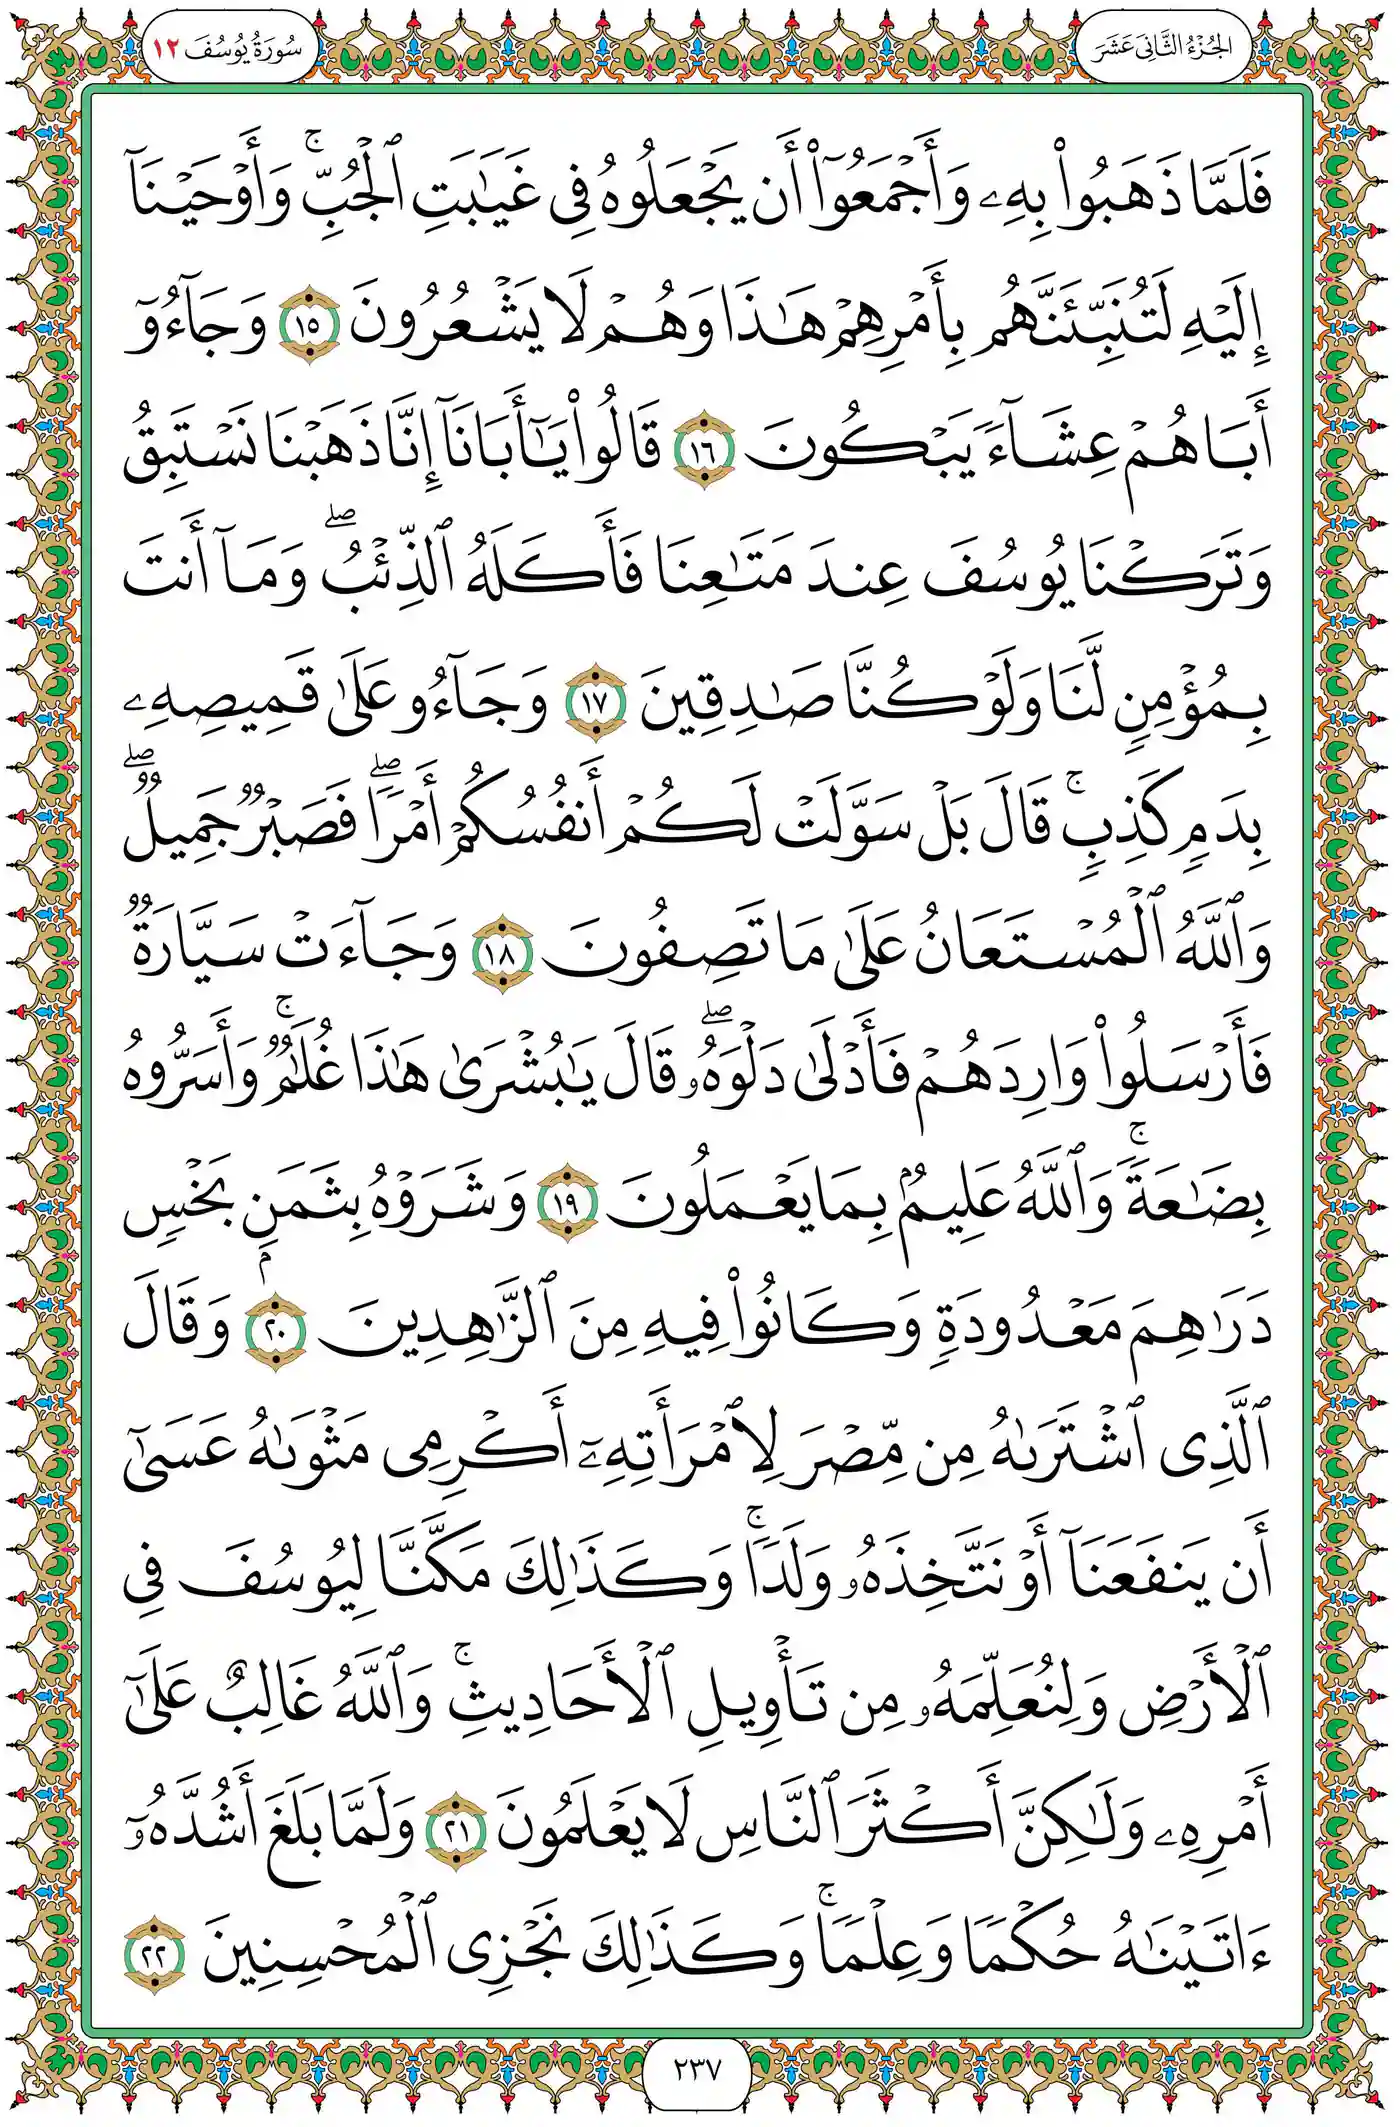 الجُزْءُ الثَّانِى عَشَرَ
سُورَةُ يُوسُفَ ١٢
فَلَمَّا ذَهَبُوا۟ بِهِۦ وَأَجْمَعُوٓا۟ أَن يَجْعَلُوهُ فِى غَيَـٰبَتِ ٱلْجُبِّ ۚ وَأَوْحَيْنَآ
إِلَيْهِ لَتُنَبِّئَنَّهُم بِأَمْرِهِمْ هَـٰذَا وَهُمْ لَا يَشْعُرُونَ ١٥ وَجَآءُوٓ
أَبَاهُمْ عِشَآءً يَبْكُونَ ١٦ قَالُوا۟ يَـٰٓأَبَانَآ إِنَّا ذَهَبْنَا نَسْتَبِقُ
وَتَرَكْنَا يُوسُفَ عِندَ مَتَـٰعِنَا فَأَكَلَهُ ٱلذِّئْبُ ۖ وَمَآ أَنتَ
بِمُؤْمِنٍ لَّنَا وَلَوْ كُنَّا صَـٰدِقِينَ ١٧ وَجَآءُو عَلَىٰ قَمِيصِهِۦ
بِدَمٍ كَذِبٍ ۚ قَالَ بَلْ سَوَّلَتْ لَكُمْ أَنفُسُكُمْ أَمْرًا ۖ فَصَبْرٌ جَمِيلٌ ۖ
وَٱللَّهُ ٱلْمُسْتَعَانُ عَلَىٰ مَا تَصِفُونَ ١٨ وَجَآءَتْ سَيَّارَةٌ
فَأَرْسَلُوا۟ وَارِدَهُمْ فَأَدْلَىٰ دَلْوَهُۥ ۖ قَالَ يَـٰبُشْرَىٰ هَـٰذَا غُلَـٰمٌ ۚ وَأَسَرُّوهُ
بِضَـٰعَةً ۚ وَٱللَّهُ عَلِيمٌۢ بِمَا يَعْمَلُونَ ١٩ وَشَرَوْهُ بِثَمَنٍۭ بَخْسٍ
دَرَٰهِمَ مَعْدُودَةٍ وَكَانُوا۟ فِيهِ مِنَ ٱلزَّٰهِدِينَ ٢٠ وَقَالَ
ٱلَّذِى ٱشْتَرَىٰهُ مِن مِّصْرَ لِٱمْرَأَتِهِۦٓ أَكْرِمِى مَثْوَىٰهُ عَسَىٰٓ
أَن يَنفَعَنَآ أَوْ نَتَّخِذَهُۥ وَلَدًا ۚ وَكَذَٰلِكَ مَكَّنَّا لِيُوسُفَ فِى
ٱلْأَرْضِ وَلِنُعَلِّمَهُۥ مِن تَأْوِيلِ ٱلْأَحَادِيثِ ۚ وَٱللَّهُ غَالِبٌ عَلَىٰٓ
أَمْرِهِۦ وَلَـٰكِنَّ أَكْثَرَ ٱلنَّاسِ لَا يَعْلَمُونَ ٢١ وَلَمَّا بَلَغَ أَشُدَّهُۥٓ
ءَاتَيْنَـٰهُ حُكْمًا وَعِلْمًا ۚ وَكَذَٰلِكَ نَجْزِى ٱلْمُحْسِنِينَ ٢٢
٢٣٧